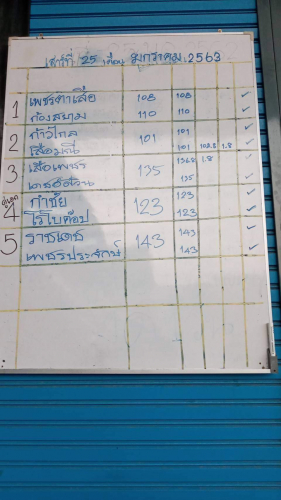 เสาร์ที่ 25 เดือน มกราคม 2563
1 เพชรตาเสือ 108 108 ✓
ก้องสนาม 110 110 ✓
2 ก้าวไกล 101 101
เสือมณี 101 102.5 1.8 ✓
3 เสือเพชร 135 136.8 1.8
135 ✓
คู่เอก 4 กำชัย 123 123 ✓
ไรโบค๊อป 123 ✓
5 ราชเดช 143 143 ✓
เพชรประจักษ์ 143 ✓